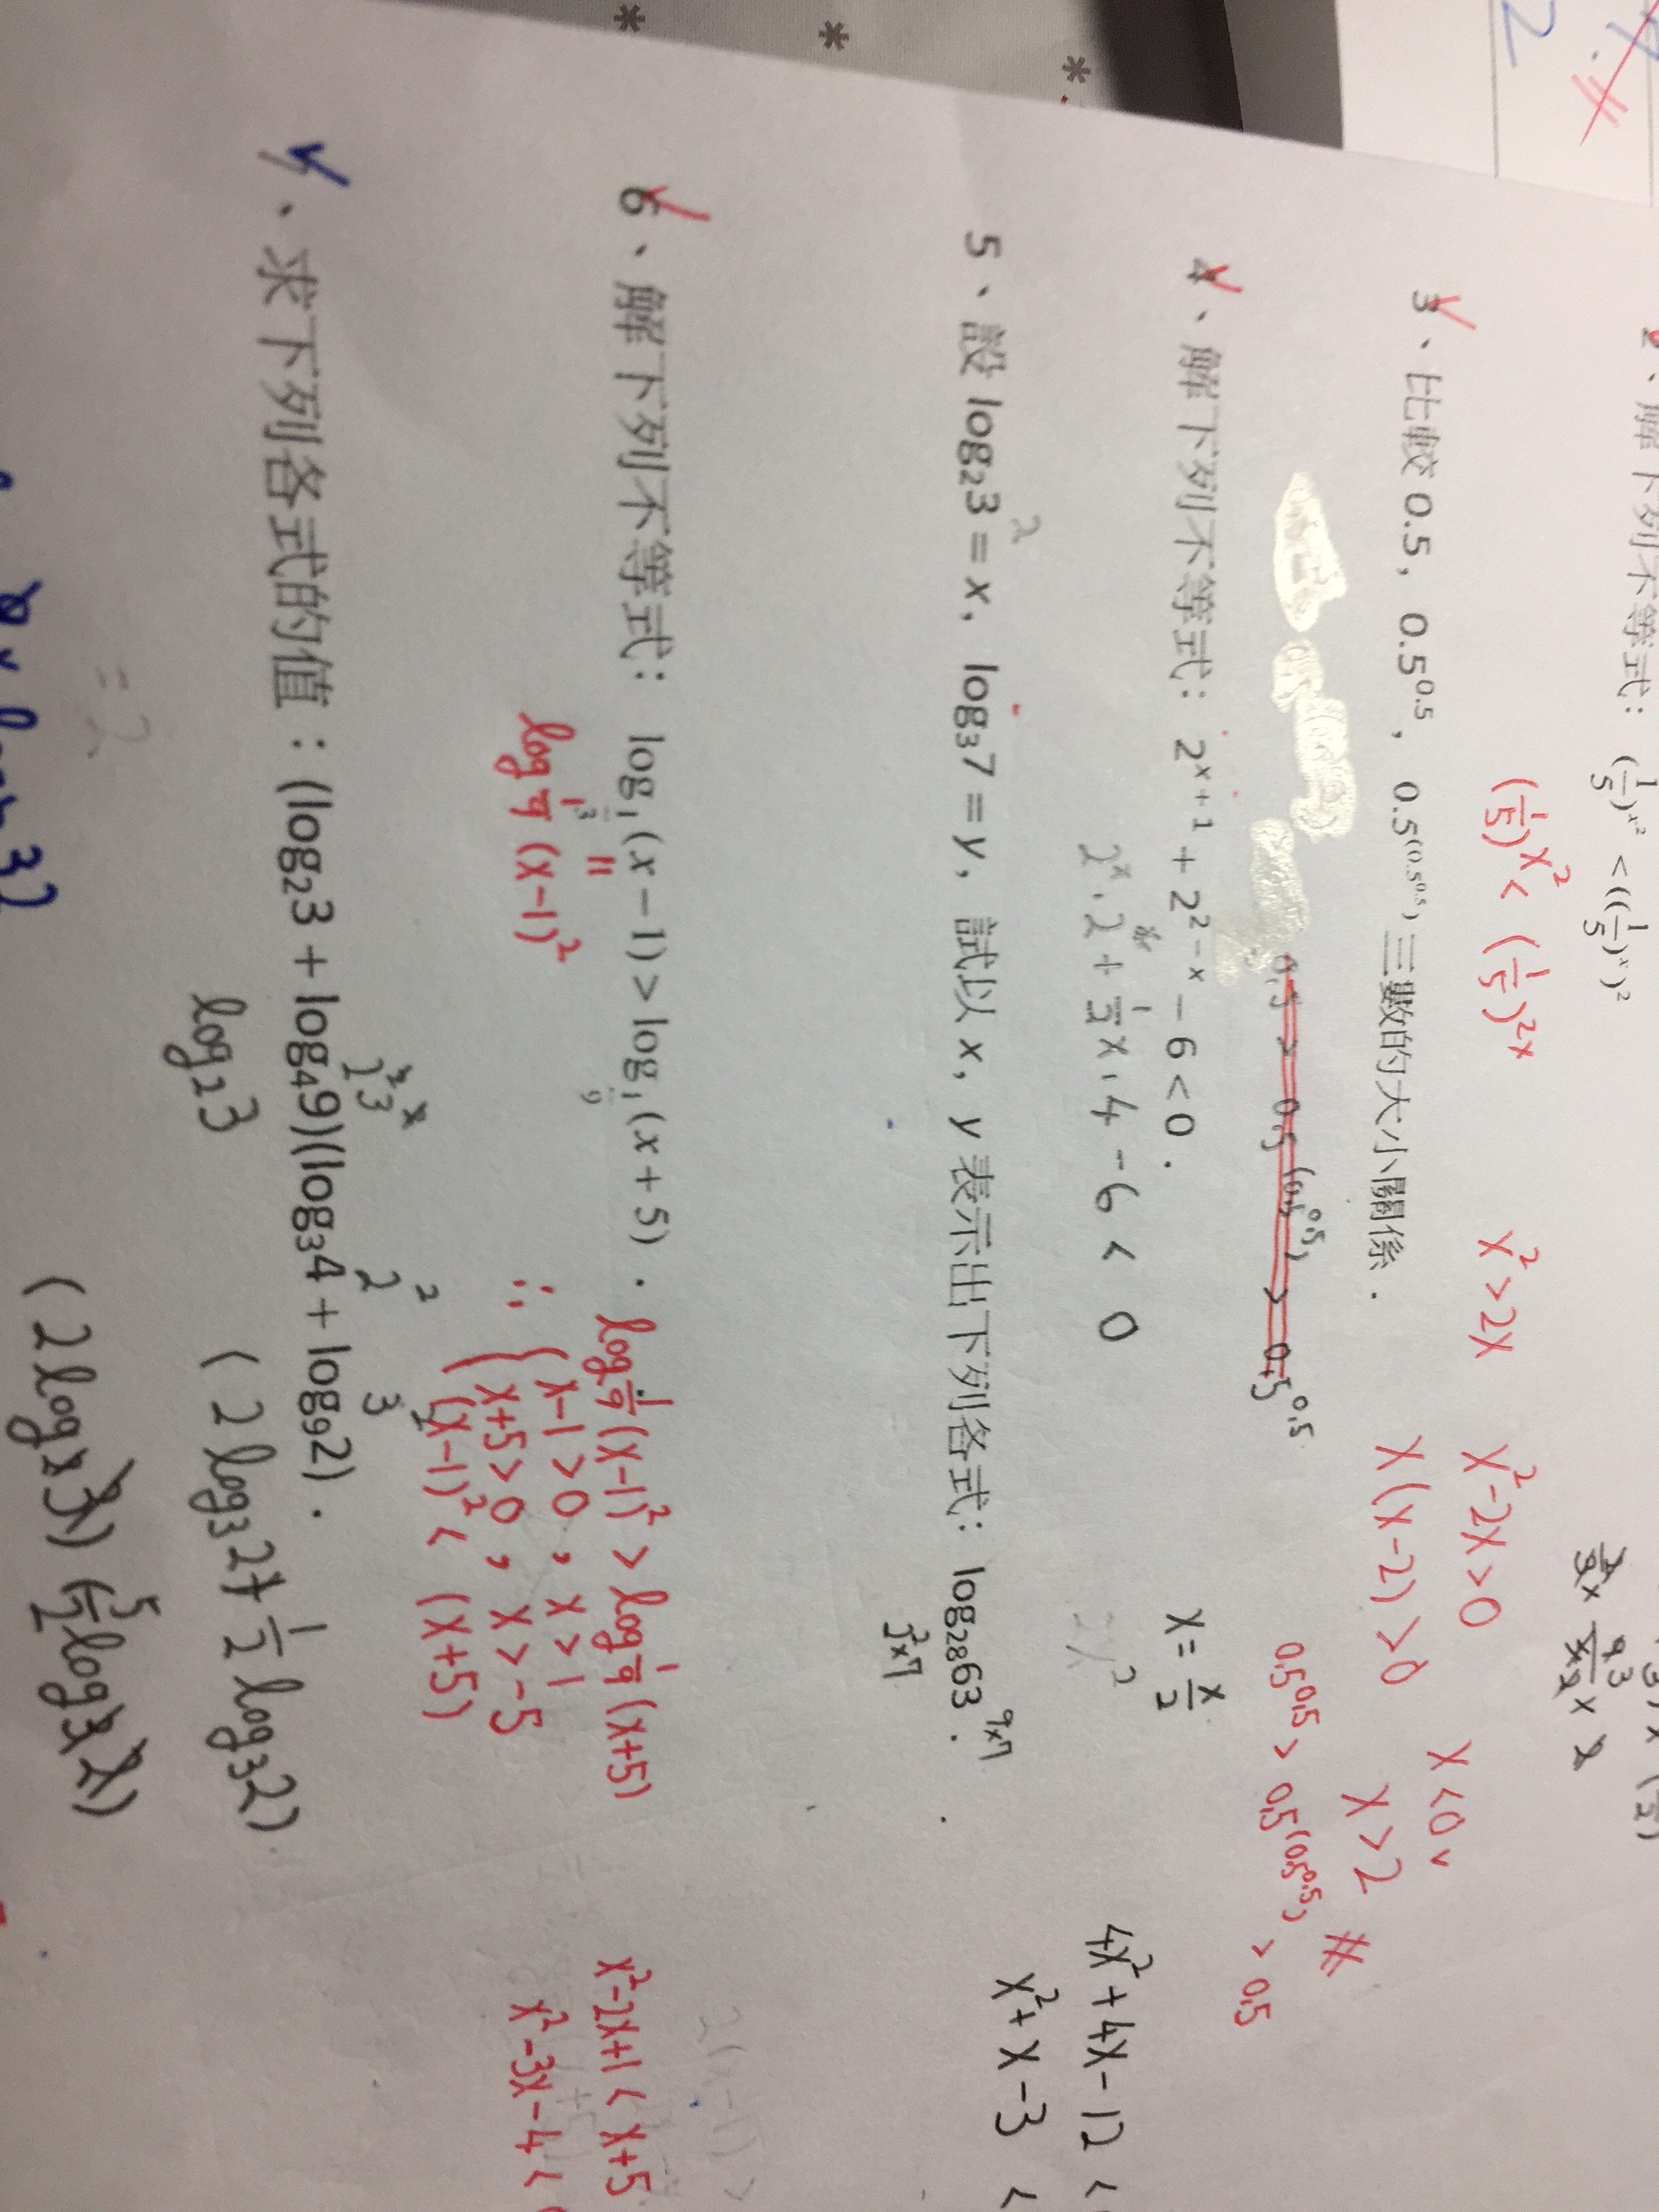 解下列不等式: (1/5)^x² < ((1/5)^x)²
(1/5)^x² < (1/5)^2x
x² > 2x
x² - 2x > 0
x(x-2) > 0
x < 0 ,
x > 2 #
3、比較 0.5, 0.5^0.5, 0.5^(0.5^0.5) 三數的大小關係.
0.5 > 0.5^(0.5^0.5) > 0.5^0.5
0.5^0.5 > 0.5^(0.5^0.5) > 0.5
4、解下列不等式: 2^(x+1) + 2^(2-x) - 6 < 0.
2^x · 2 + 1/2^x · 4 - 6 < 0
x = x/2
2x²
4x² + 4x - 12 <
x² + x - 3 <
5、設 log₂3 = x, log₃7 = y, 試以 x, y 表示出下列各式: log₂₈63.
2
9×7
3²×7
6、解下列不等式: log_1/3 (x-1) > log_1/9 (x+5).
=
log 1/9 (x-1)²
log 1/9 (x-1)² > log 1/9 (x+5)
∴ { x-1 > 0 , x > 1
x+5 > 0 , x > -5
(x-1)² < (x+5)
x² - 2x + 1 < x + 5
x² - 3x - 4 <
2(x-1) >
、求下列各式的值:(log₂3 + log₄9)(log₃4 + log₉2).
log₂3
(2 log₃2 + 1/2 log₃2)
= 2
(2 log₂3) (5/2 log₃2)